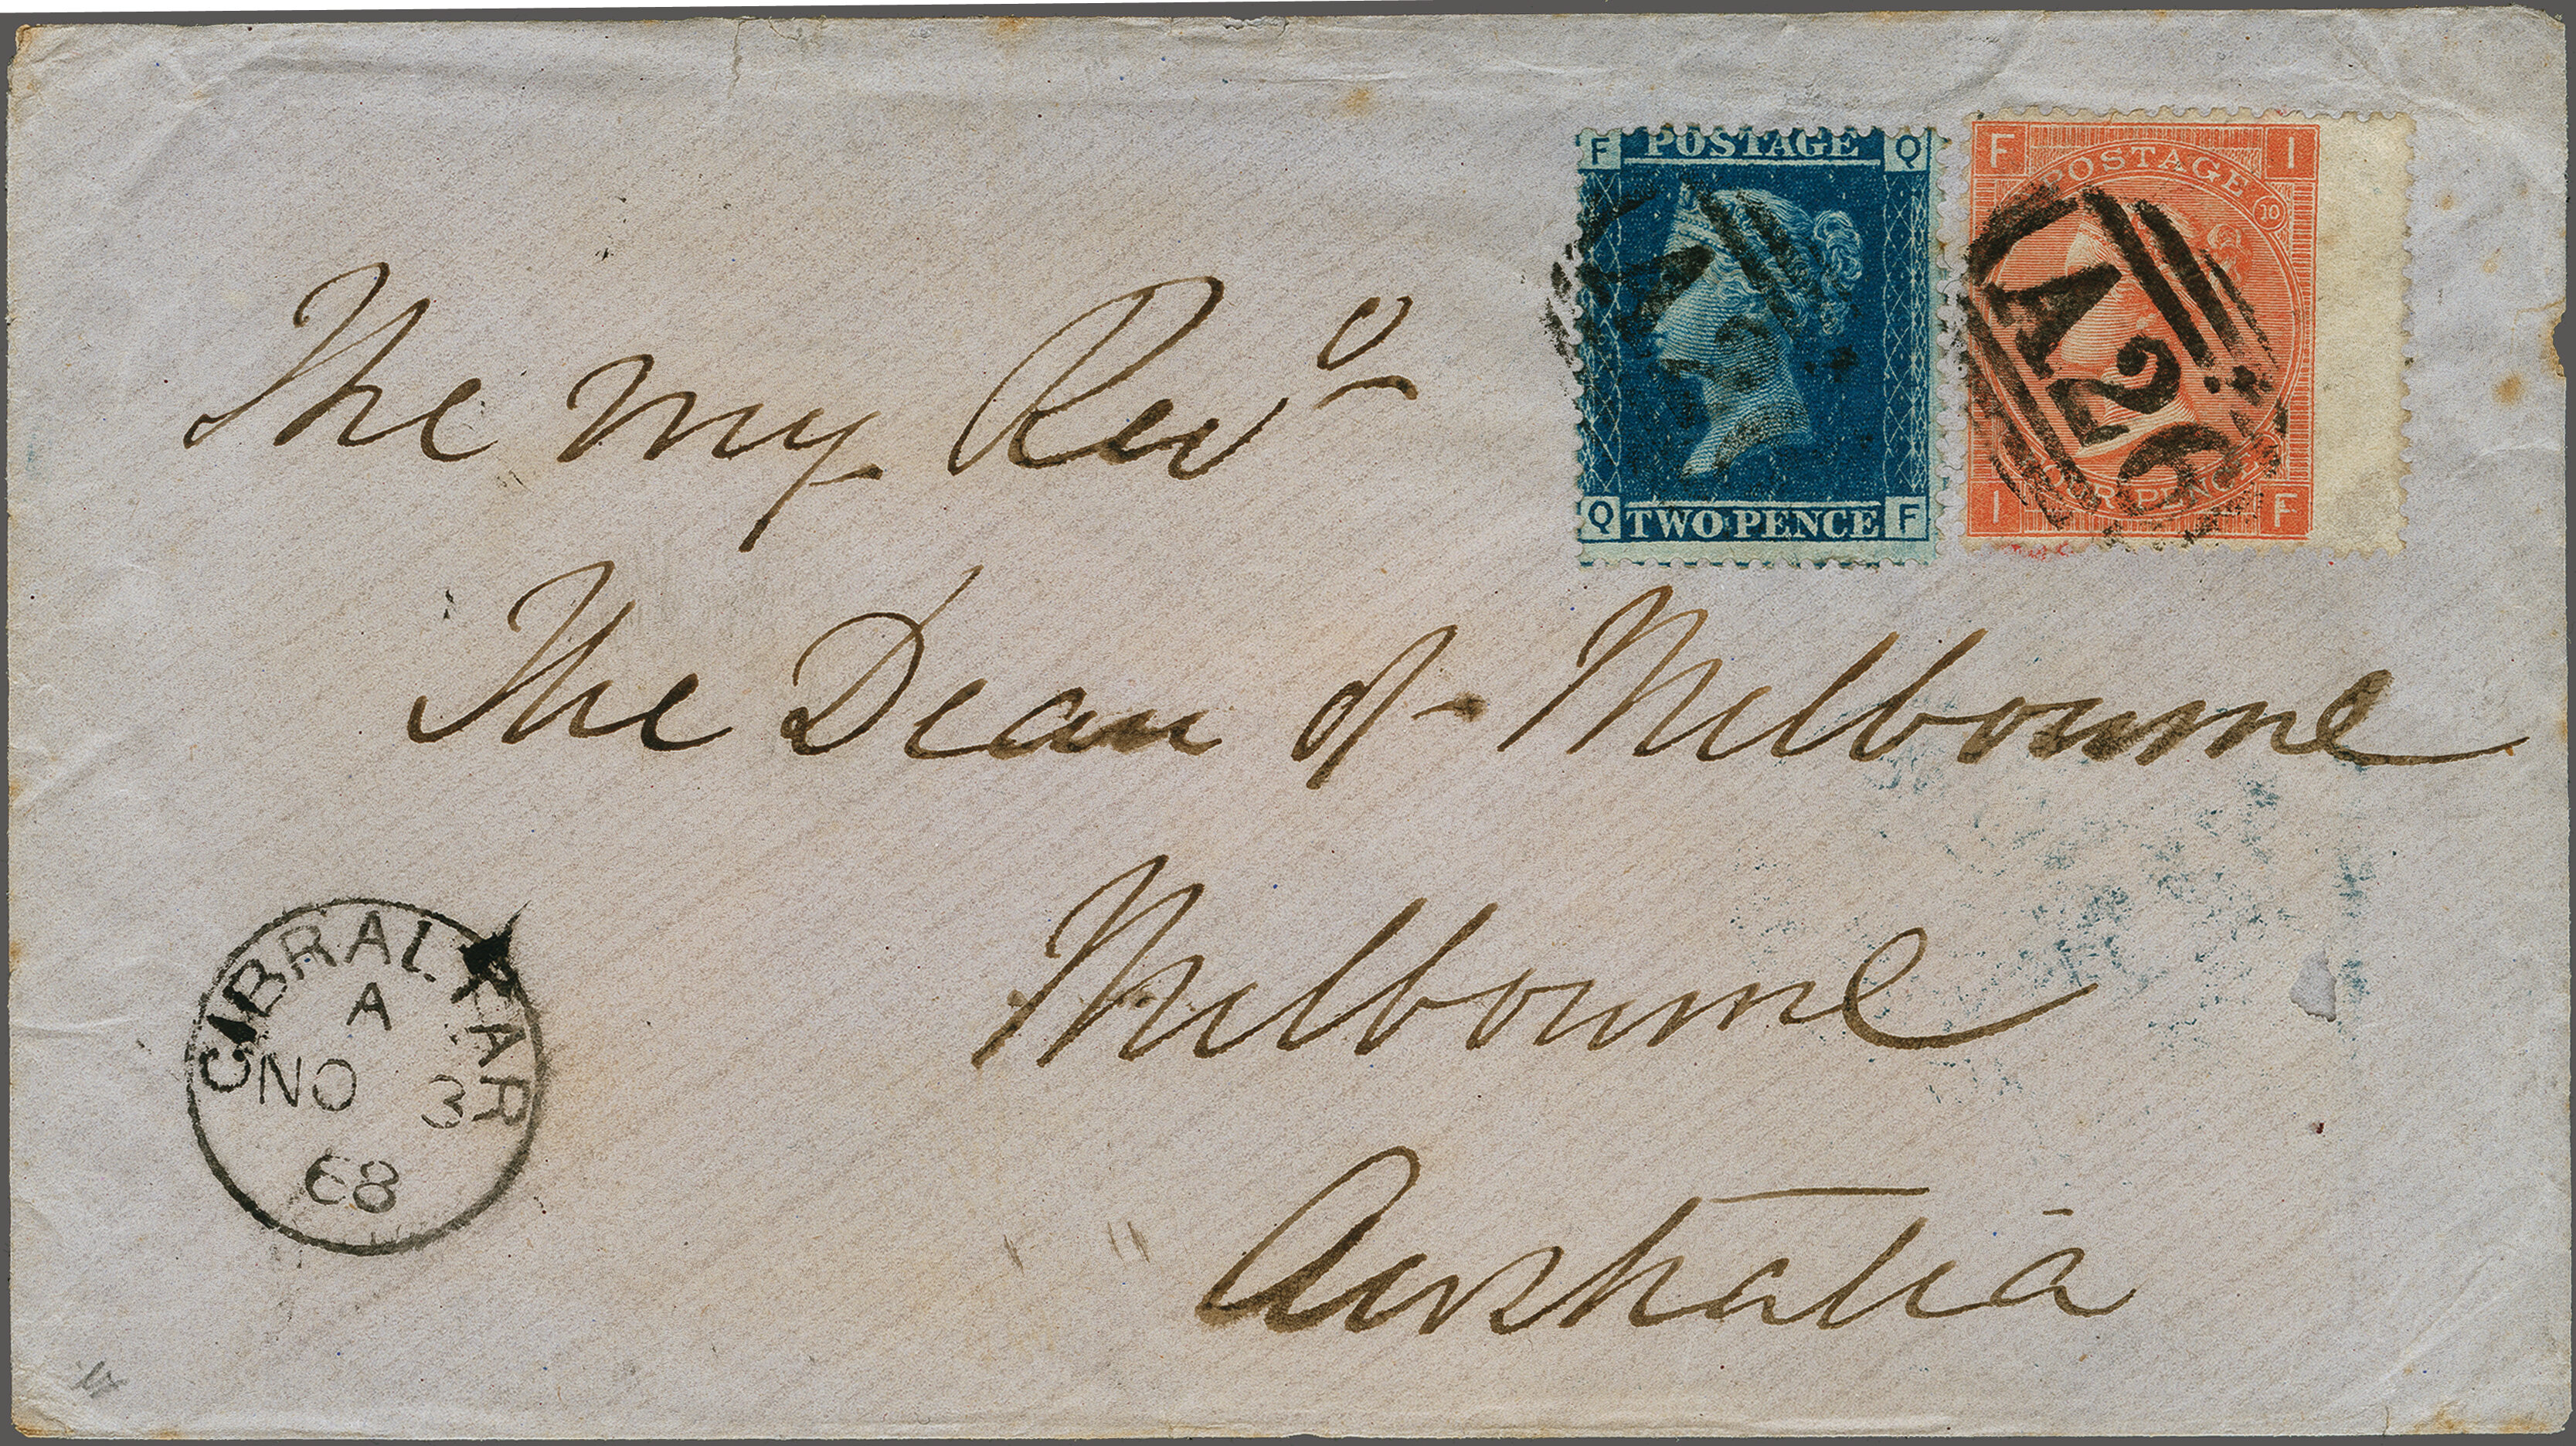 F POSTAGE Q
Q TWO PENCE F
F I
POSTAGE
10
A26
FOUR PENCE
I F
The Very Revd
The Dean of Melbourne
Melbourne
Australia
GIBRALTAR
A
NO 3
68